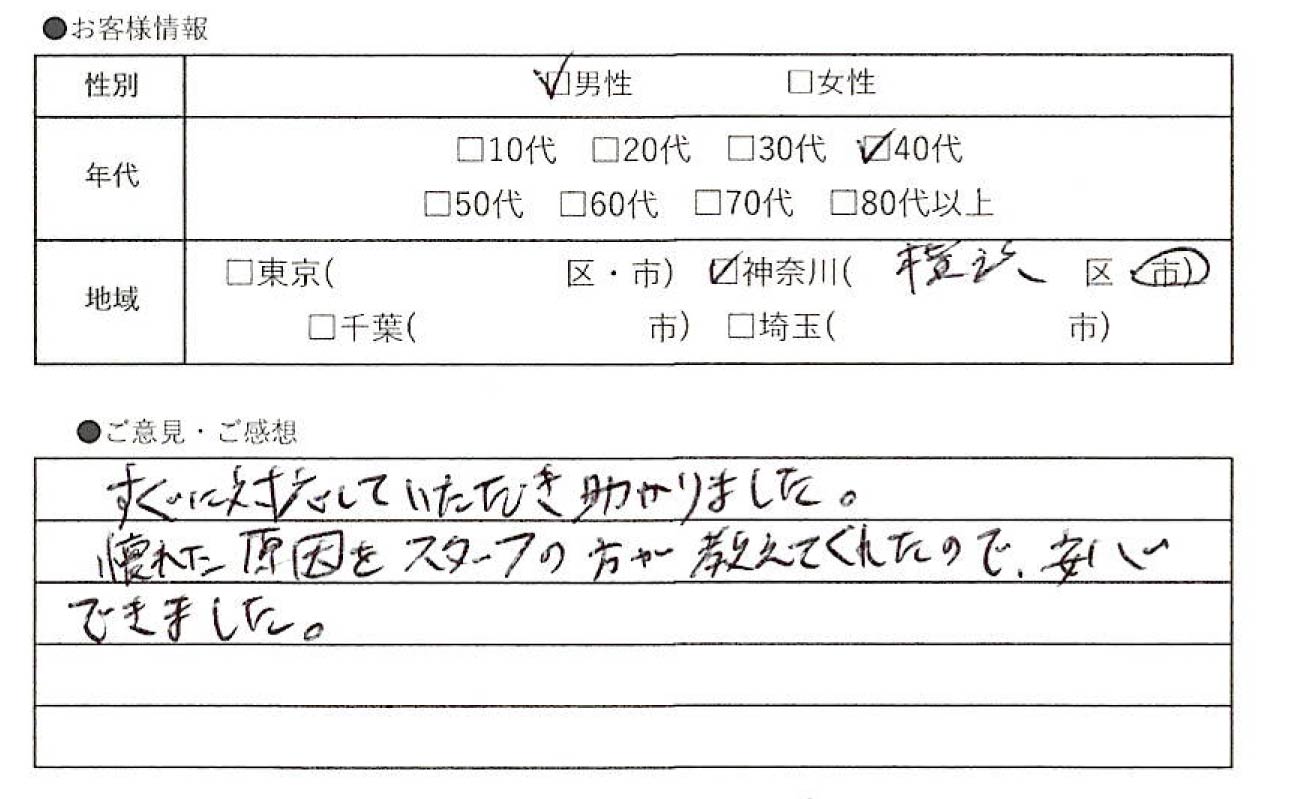 ●お客様情報
性別 ☑男性 □女性
年代 □10代 □20代 □30代 ☑40代
□50代 □60代 □70代 □80代以上
地域 □東京( 区・市) ☑神奈川( 横浜 区・市)
□千葉( 市) □埼玉( 市)
●ご意見・ご感想
すぐに対応していただき助かりました。
壊れた原因をスタッフの方が教えてくれたので、安心
できました。